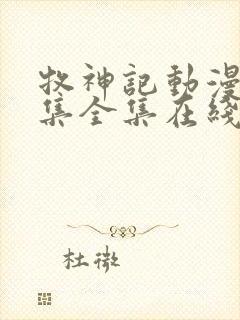 牧神記動漫
集全集在綫
杜微